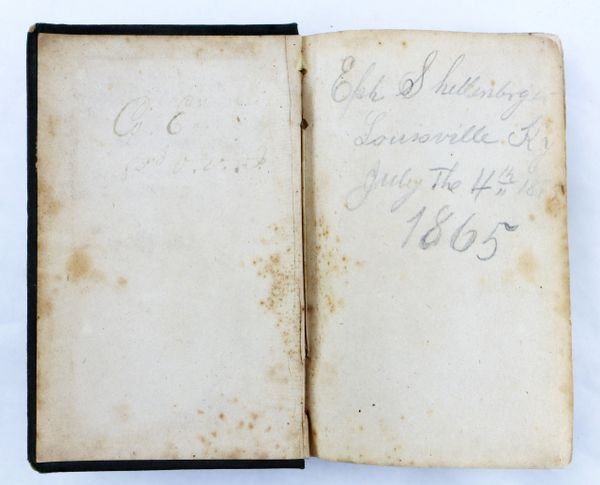 Co. E
O. V. I.
Eph Shellenberger
Louisville Ky
July The 4th 18
1865